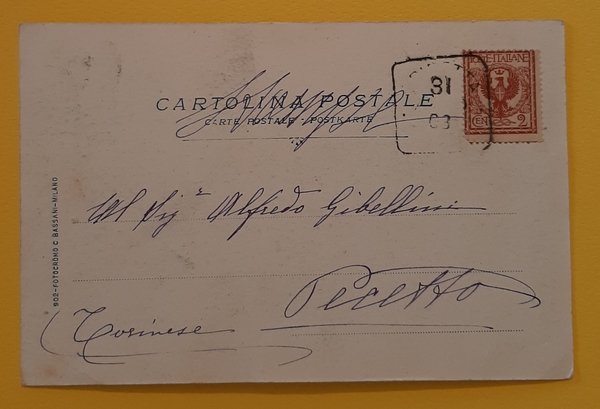 POSTE ITALIANE
31
03
CENT 2
CARTOLINA POSTALE
Stampe
CARTE POSTALE - POSTKARTE
Al Sigr Alfredo Gibellini
Pecetto
Torinese
902-FOTOCROMO C BASSANI-MILANO